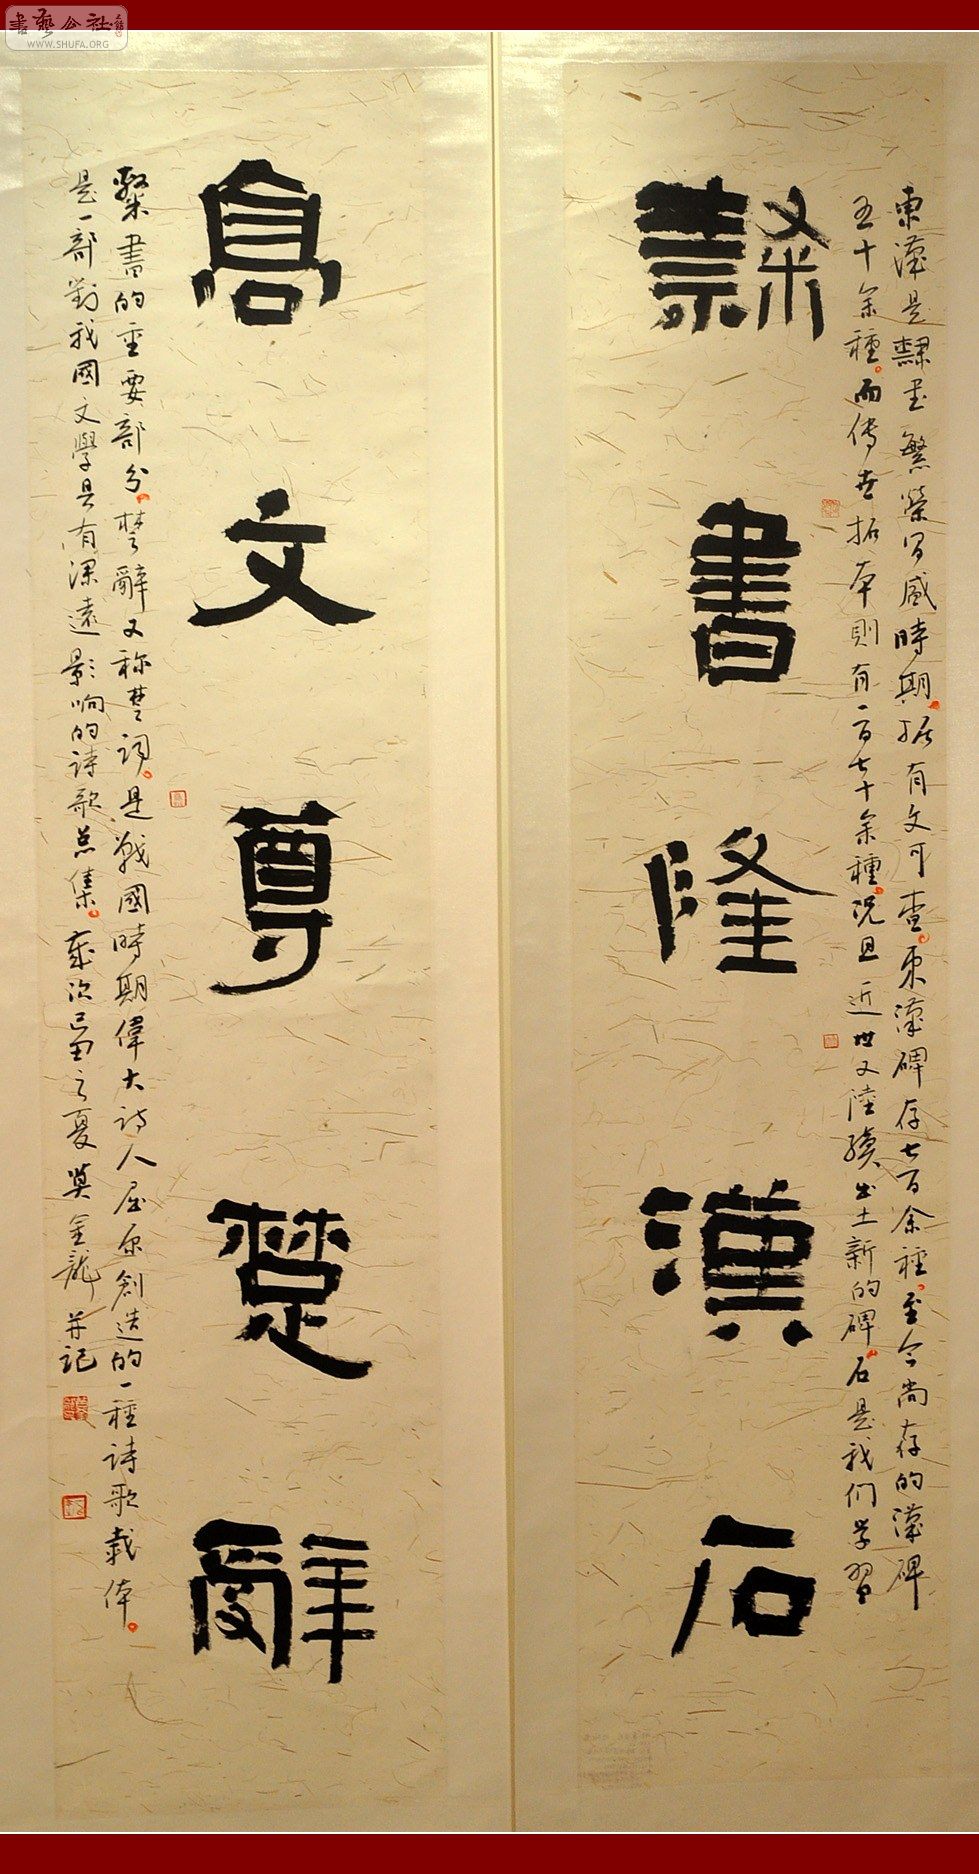 書藝公社
WWW.SHUFA.ORG
隸書隆漢石
東漢是隸書繁榮鼎盛時期據有文可查東漢碑存七百余種至今尚存的漢碑
五十余種而傳世拓本則有一百七十余種況且近世又陸續出土新的碑石是我们学習
高文尊楚辭
隸書的重要部分楚辭又称楚詞是戰國時期偉大詩人屈原創造的一種詩歌載体
是一部對我國文學具有深遠影响的詩歌总集歲次之夏莫金龍并記